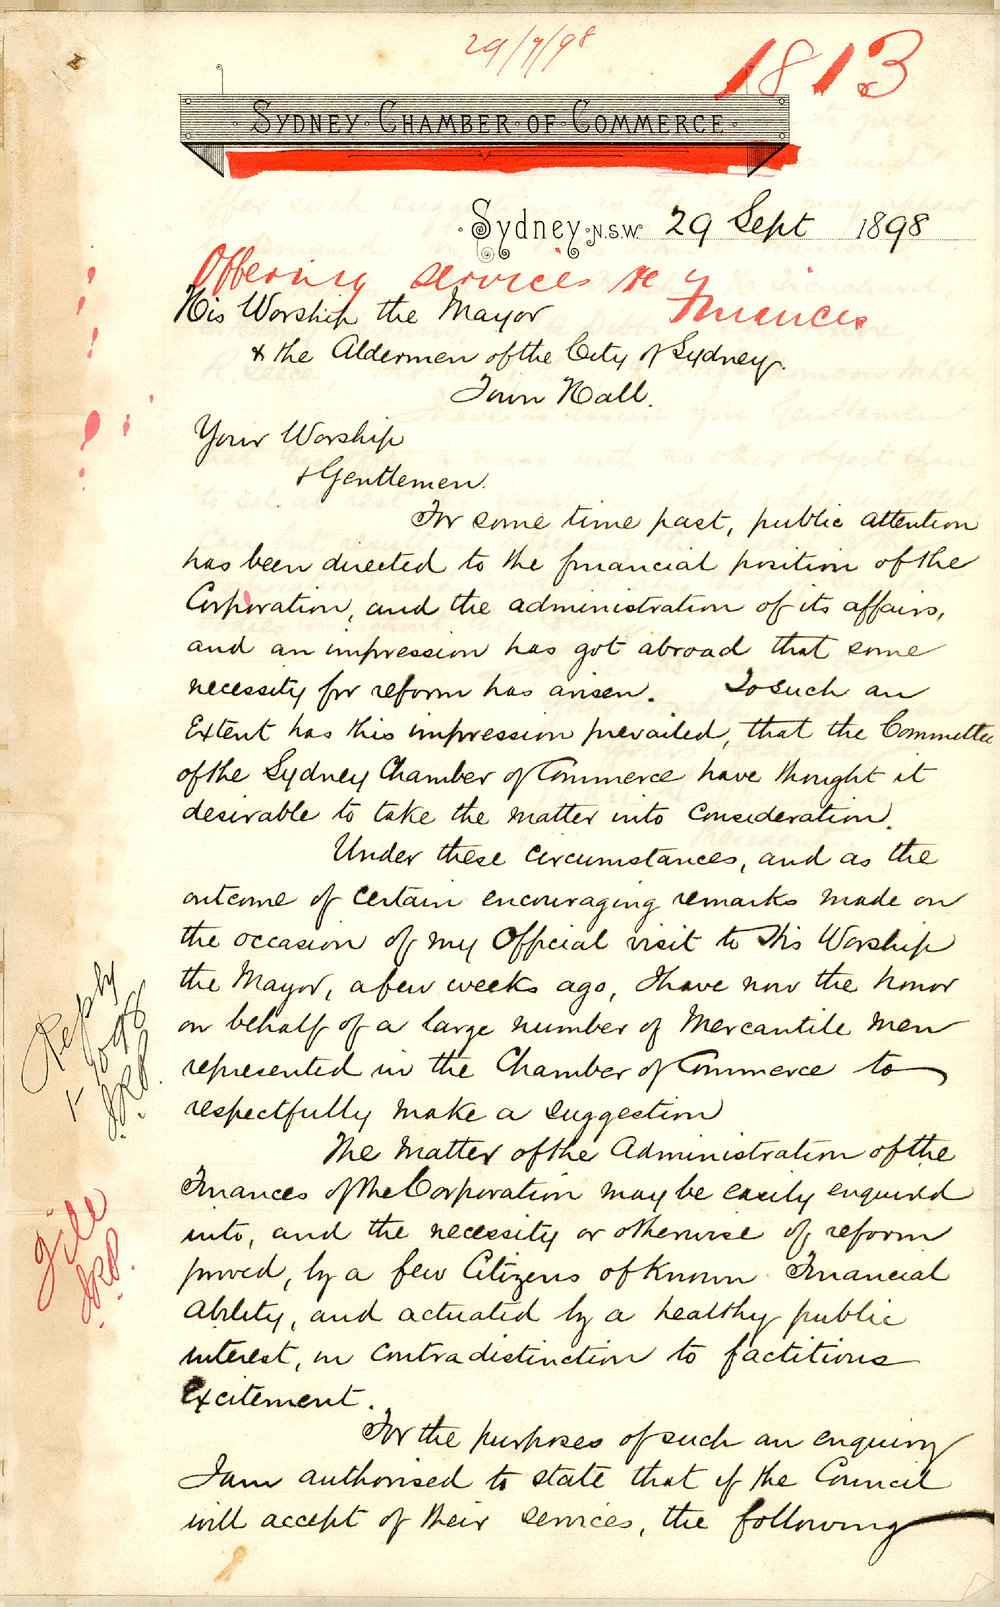 29/9/98
1813
SYDNEY CHAMBER OF COMMERCE
Sydney N.S.W. 29 Sept 1898
Offering services re Finances
His Worship the Mayor
& the Aldermen of the City of Sydney.
Town Hall.
Your Worship
& Gentlemen.
For some time past, public attention
has been directed to the financial position of the
Corporation, and the administration of its affairs,
and an impression has got abroad that some
necessity for reform has arisen. To such an
Extent has this impression prevailed, that the Committee
of the Sydney Chamber of Commerce have thought it
desirable to take the matter into consideration.
Under these circumstances, and as the
outcome of certain encouraging remarks made on
the occasion of my Official visit to His Worship
the Mayor, a few weeks ago, I have now the honor
on behalf of a large number of Mercantile men
represented in the Chamber of Commerce to
respectfully make a suggestion
The Matter of the Administration of the
Finances of the Corporation may be easily enquired
into, and the necessity or otherwise of reform
proved, by a few Citizens of known Financial
Ability, and actuated by a healthy public
interest, in contradistinction to factitious
excitement.
For the purposes of such an enquiry
I am authorised to state that if the Council
will accept of their services, the following
Reply
File